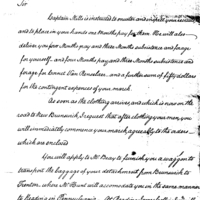 Sir
Captain Mills is instructed to muster and inspect your recruits
and to place in your hands one Months pay for them. He will also
deliver you four Months pay and three Months subsistence and forage
for yourself, and four Months pay and three Months subsistence and
forage for Cornet Van Rensselaer and a further sum of fifty dollars
for the contingent expenses of your march.
As soon as the clothing arrives, and which is now on the
road to New Brunswick, I request that after clothing your men, you
will immediately commence your march agreeably to the orders
which are enclosed
You will apply to Mr Bray to furnish you a waggon to
transport the baggage of your detachment from Brunswick to
Trenton, where Mr Hunt will accomodate you in the same manner
to Reading in Pennsylvania. At Reading